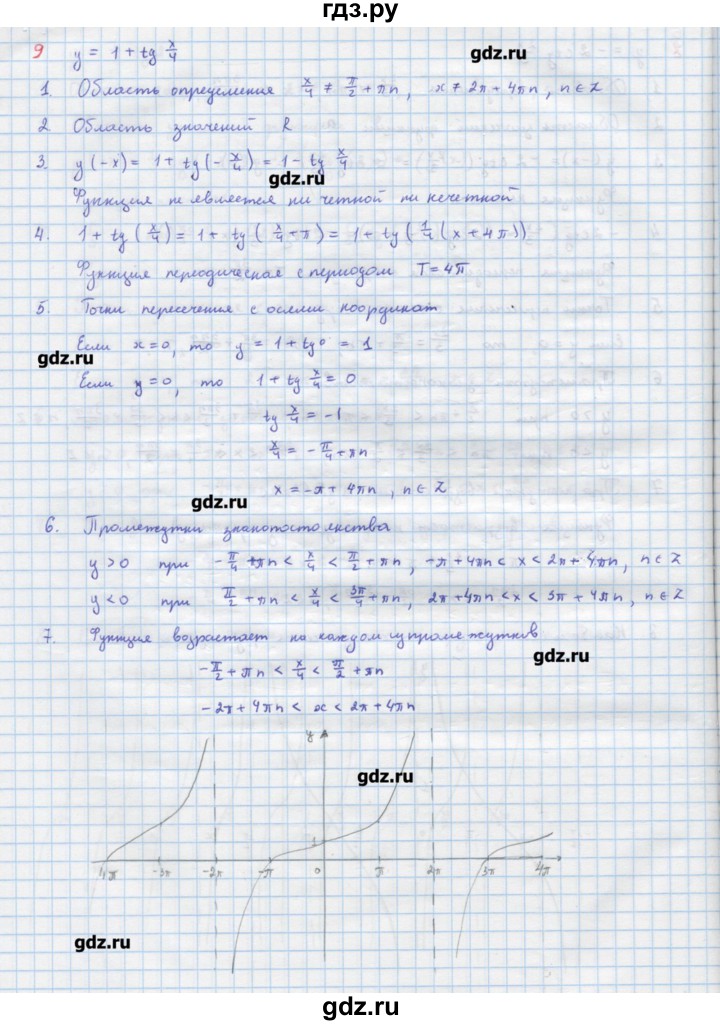 гдз.ру
9 y = 1 + tg x/4
gdz.ru
1. Область определения x/4 ≠ π/2 + πn, x ≠ 2π + 4πn, n ∈ Z
2 Область значений R
3. y(-x) = 1 + tg(- x/4) = 1 - tg x/4
gdz.ru
Функция не является ни четной ни нечетной
4. 1 + tg(x/4) = 1 + tg(x/4 + π) = 1 + tg(1/4(x + 4π))
Функция периодическая с периодом T = 4π
5. Точки пересечения с осями координат
Если x = 0, то y = 1 + tg0 = 1
gdz.ru
Если y = 0, то 1 + tg x/4 = 0
tg x/4 = -1
x/4 = - π/4 + πn
x = -π + 4πn, n ∈ Z
gdz.ru
6. Промежутки знакопостоянства
y > 0 при -π/4 + πn < x/4 < π/2 + πn, -π + 4πn < x < 2π + 4πn, n ∈ Z
y < 0 при π/2 + πn < x/4 < 3π/4 + πn, 2π + 4πn < x < 3π + 4πn, n ∈ Z
7. Функция возрастает на каждом из промежутков
gdz.ru
-π/2 + πn < x/4 < π/2 + πn
-2π + 4πn < x < 2π + 4πn
y
gdz.ru
1
4π -3π -2π -π 0 π 2π 3π 4π
gdz.ru
gdz.ru